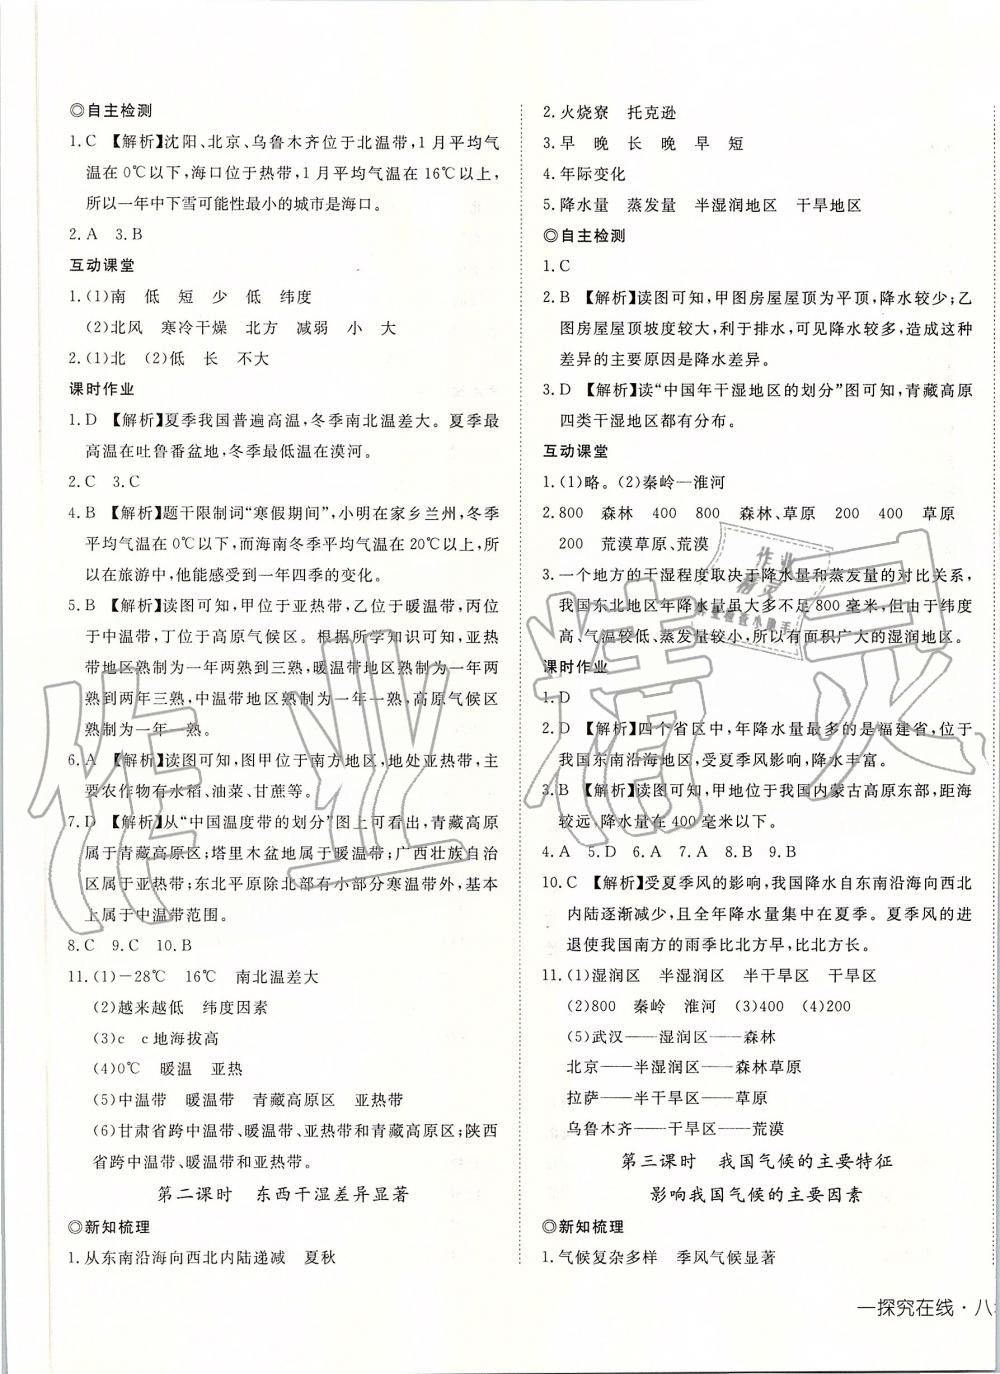 ◎自主检测
1.C 【解析】沈阳、北京、乌鲁木齐位于北温带,1月平均气
温在0℃以下,海口位于热带,1月平均气温在16℃以上,
所以一年中下雪可能性最小的城市是海口。
2.A 3.B
互动课堂
1.(1)南 低 短 少 低 纬度
(2)北风 寒冷干燥 北方 减弱 小 大
2.(1)北 (2)低 长 不大
课时作业
1.D 【解析】夏季我国普遍高温,冬季南北温差大。夏季最
高温在吐鲁番盆地,冬季最低温在漠河。
2.C 3.C
4.B 【解析】题干限制词“寒假期间”,小明在家乡兰州,冬季
平均气温在0℃以下,而海南冬季平均气温在20℃以上,所
以在旅游中,他能感受到一年四季的变化。
5.B 【解析】读图可知,甲位于亚热带,乙位于暖温带,丙位
于中温带,丁位于高原气候区。根据所学知识可知,亚热
带地区熟制为一年两熟到三熟,暖温带地区熟制为一年两
熟到两年三熟,中温带地区熟制为一年一熟,高原气候区
熟制为一年一熟。
6.A 【解析】读图可知,图甲位于南方地区,地处亚热带,主
要农作物有水稻、油菜、甘蔗等。
7.D 【解析】从“中国温度带的划分”图上可看出,青藏高原
属于青藏高原区;塔里木盆地属于暖温带;广西壮族自治
区属于亚热带;东北平原除北部有小部分寒温带外,基本
上属于中温带范围。
8.C 9.C 10.B
11.(1)-28℃ 16℃ 南北温差大
(2)越来越低 纬度因素
(3)c c地海拔高
(4)0℃ 暖温 亚热
(5)中温带 暖温带 青藏高原区 亚热带
(6)甘肃省跨中温带、暖温带、亚热带和青藏高原区;陕西
省跨中温带、暖温带和亚热带。
第二课时 东西干湿差异显著
◎新知梳理
1.从东南沿海向西北内陆递减 夏秋
2.火烧寮 托克逊
3.早 晚 长 晚 早 短
4.年际变化
5.降水量 蒸发量 半湿润地区 干旱地区
◎自主检测
1.C
2.B 【解析】读图可知,甲图房屋屋顶为平顶,降水较少;乙
图房屋屋顶坡度较大,利于排水,可见降水较多,造成这种
差异的主要原因是降水差异。
3.D 【解析】读“中国年干湿地区的划分”图可知,青藏高原
四类干湿地区都有分布。
互动课堂
1.(1)略。(2)秦岭—淮河
2.800 森林 400 800 森林、草原 200 400 草原
200 荒漠草原、荒漠
3.一个地方的干湿程度取决于降水量和蒸发量的对比关系,
我国东北地区年降水量虽大多不足800毫米,但由于纬度
高、气温较低、蒸发量较小,所以有面积广大的湿润地区。
课时作业
1.D
2.D 【解析】四个省区中,年降水量最多的是福建省,位于
我国东南沿海地区,受夏季风影响,降水丰富。
3.B 【解析】读图可知,甲地位于我国内蒙古高原东部,距海
较远,降水量在400毫米以下。
4.A 5.D 6.A 7.A 8.B 9.B
10.C 【解析】受夏季风的影响,我国降水自东南沿海向西北
内陆逐渐减少,且全年降水量集中在夏季。夏季风的进
退使我国南方的雨季比北方早,比北方长。
11.(1)湿润区 半湿润区 半干旱区 干旱区
(2)800 秦岭 淮河 (3)400 (4)200
(5)武汉——湿润区——森林
北京——半湿润区——森林草原
拉萨——半干旱区——草原
乌鲁木齐——干旱区——荒漠
第三课时 我国气候的主要特征
影响我国气候的主要因素
◎新知梳理
1.气候复杂多样 季风气候显著
一探究在线·八
作业精灵
作业
精灵
作业检查小助手